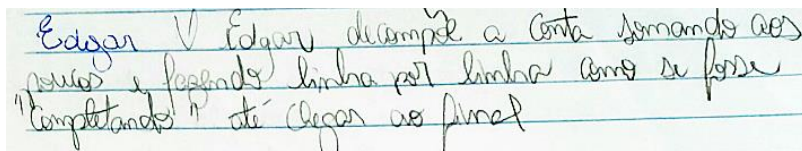 Edgar V Edgar decompõe a conta somando aos
poucos e fazendo linha por linha como se fosse
"Completando" até chegar ao final